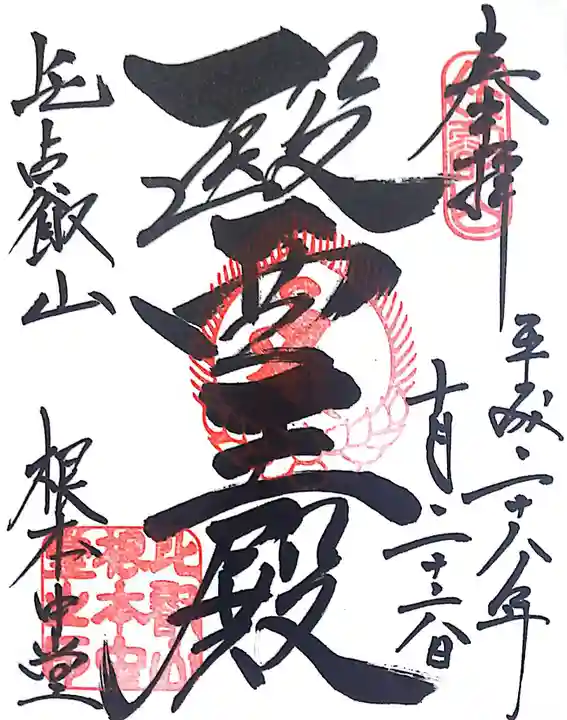 奉拝
平成二十八年
十月二十三日
醫王殿
比叡山
根本中堂
比叡山
根本中
堂之印